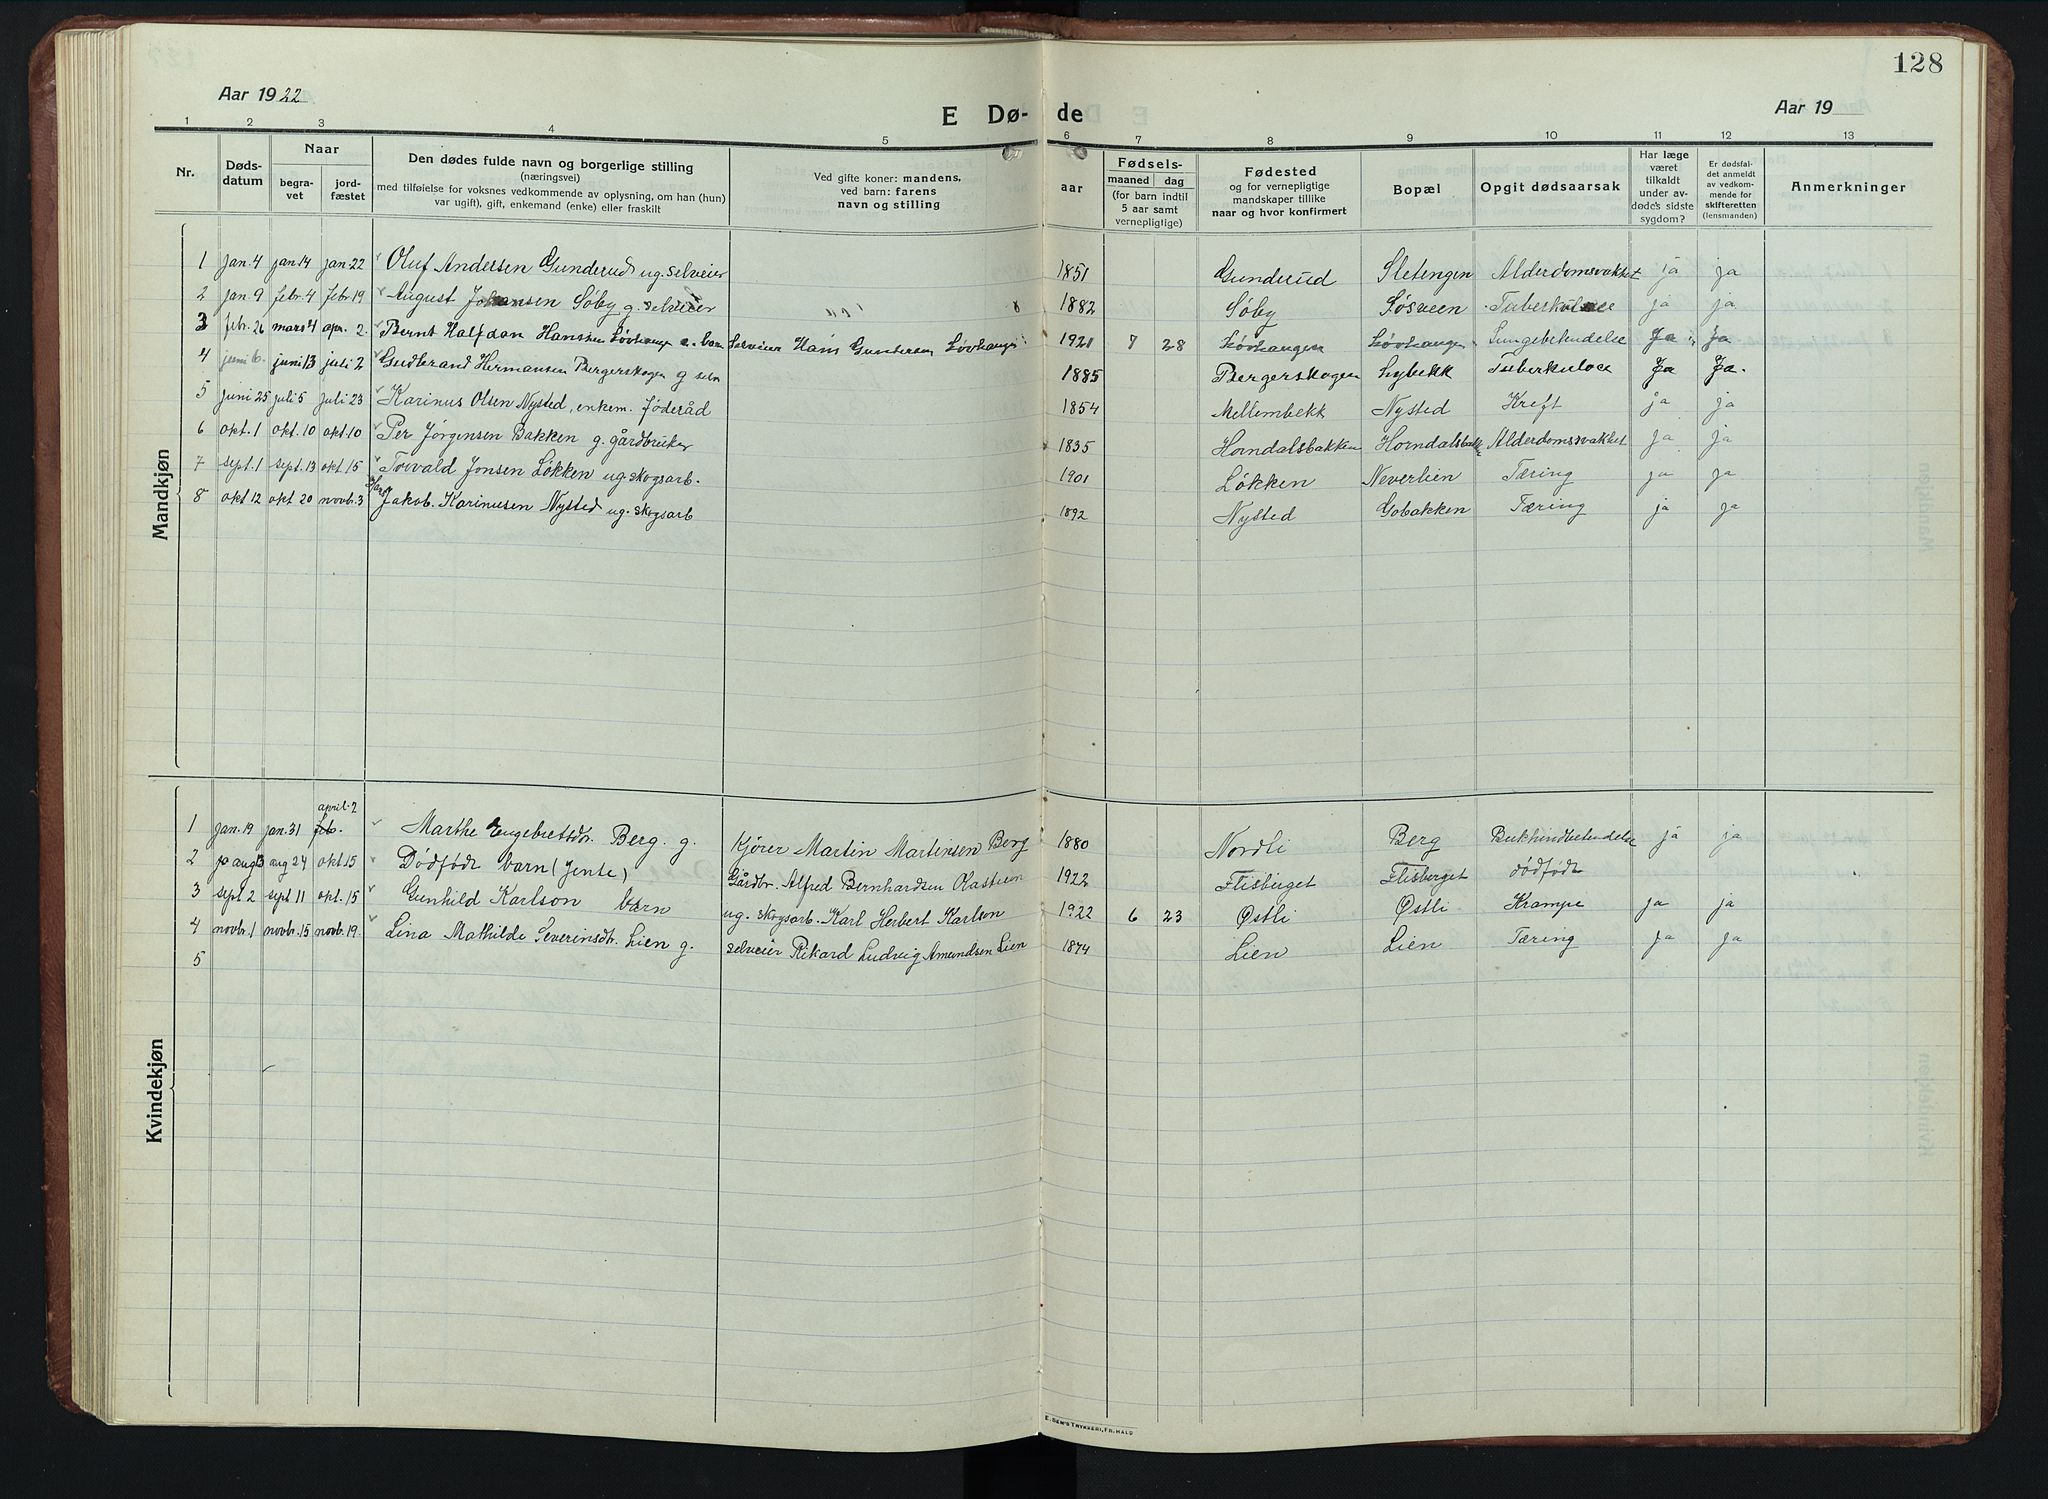 128
Aar 1922
E Dø-de
Aar 19
1 2 3 4 5 6 7 8 9 10 11 12 13
Nr.
Døds-
datum
Naar
begra-
vet
jord-
fæstet
Den dødes fulde navn og borgerlige stilling
(næringsvei)
med tilføielse for voksnes vedkommende av oplysning, om han (hun)
var ugift), gift, enkemand (enke) eller fraskilt
Ved gifte koner: mandens,
ved barn: farens
navn og stilling
aar
Fødsels-
maaned dag
(for barn indtil
5 aar samt
vernepligtige)
Fødested
og for vernepligtige
mandskaper tillike
naar og hvor konfirmert
Bopæl
Opgit dødsaarsak
Har læge
været
tilkaldt
under av-
døde's sidste
sygdom?
Er dødsfal-
det anmeldt
av vedkom-
mende for
skifteretten
(lensmanden)
Anmerkninger
Mandkjøn
1 jan. 4 jan. 14 jan. 22 Oluf Andersen Gunderud ug. selveier 1851 Gunderud Sletengen Alderdomsvakhet ja ja
2 jan. 9 febr. 4 febr. 19 August Johansen Søby g. selveier 1882 Søby Søsveen Tuberkulose ja ja
3 febr. 26 mars 4 apr. 2 Bernt Halfdan Hansen Løvhaugen barn Selveier Hans Gundersen Løvhaugen 1921 7 28 Løvhaugen Løvhaugen Lungebetendelse Ja Ja
4 juni 6 juni 13 juli 2 Gudbrand Hermansen Bergerskogen g selv 1885 Bergerskogen Lybekk Tuberkulose Ja Ja.
5 juni 25 juli 5 juli 23 Karinus Olsen Nysted, enkem. føderåd 1854 Mellembekk Nysted Kreft ja ja
6 okt. 1 okt. 10 okt. 10 Per Jørgensen Bakken g. gårdbruker 1835 Horndalsbakken Horndalsbakken Alderdomssvakhet ja ja
7 sept. 1 sept. 13 okt. 15 Torvald Jonsen Løkken ug. skogsarb. 1901 Løkken Neverlien Tæring ja ja
8 okt 12 okt 20 novb. 3 Hans Jakob Karinusen Nysted ug. skogsarb 1892 Nysted Gobakken Tæring ja ja
Kvindekjøn
april 2
1 jan. 19 jan. 31 feb. Marthe Engebretsdr. Berg g. Kjører Martin Martinsen Berg 1880 Nordli Berg Bukhindbetendelse ja ja
2 aug 13 aug 24 okt 15 Dødfødt barn (Jente) Gårdbr. Alfred Bernhardsen Olasveen 1922 Flisberget Flisberget dødfødt
3 sept 2 sept 11 okt. 15 Gunhild Karlson barn ug. skogsarb. Karl Herbert Karlson 1922 6 23 Østli Østli Krampe ja ja
4 novb. 1 novb. 15 novb. 19 Lina Mathilde Severinsdr. Lien g. selveier Rikard Ludvig Amundsen Lien 1874 Lien Lien Tæring ja ja
5
E. SEM'S TRYKKERI, FR. HALD